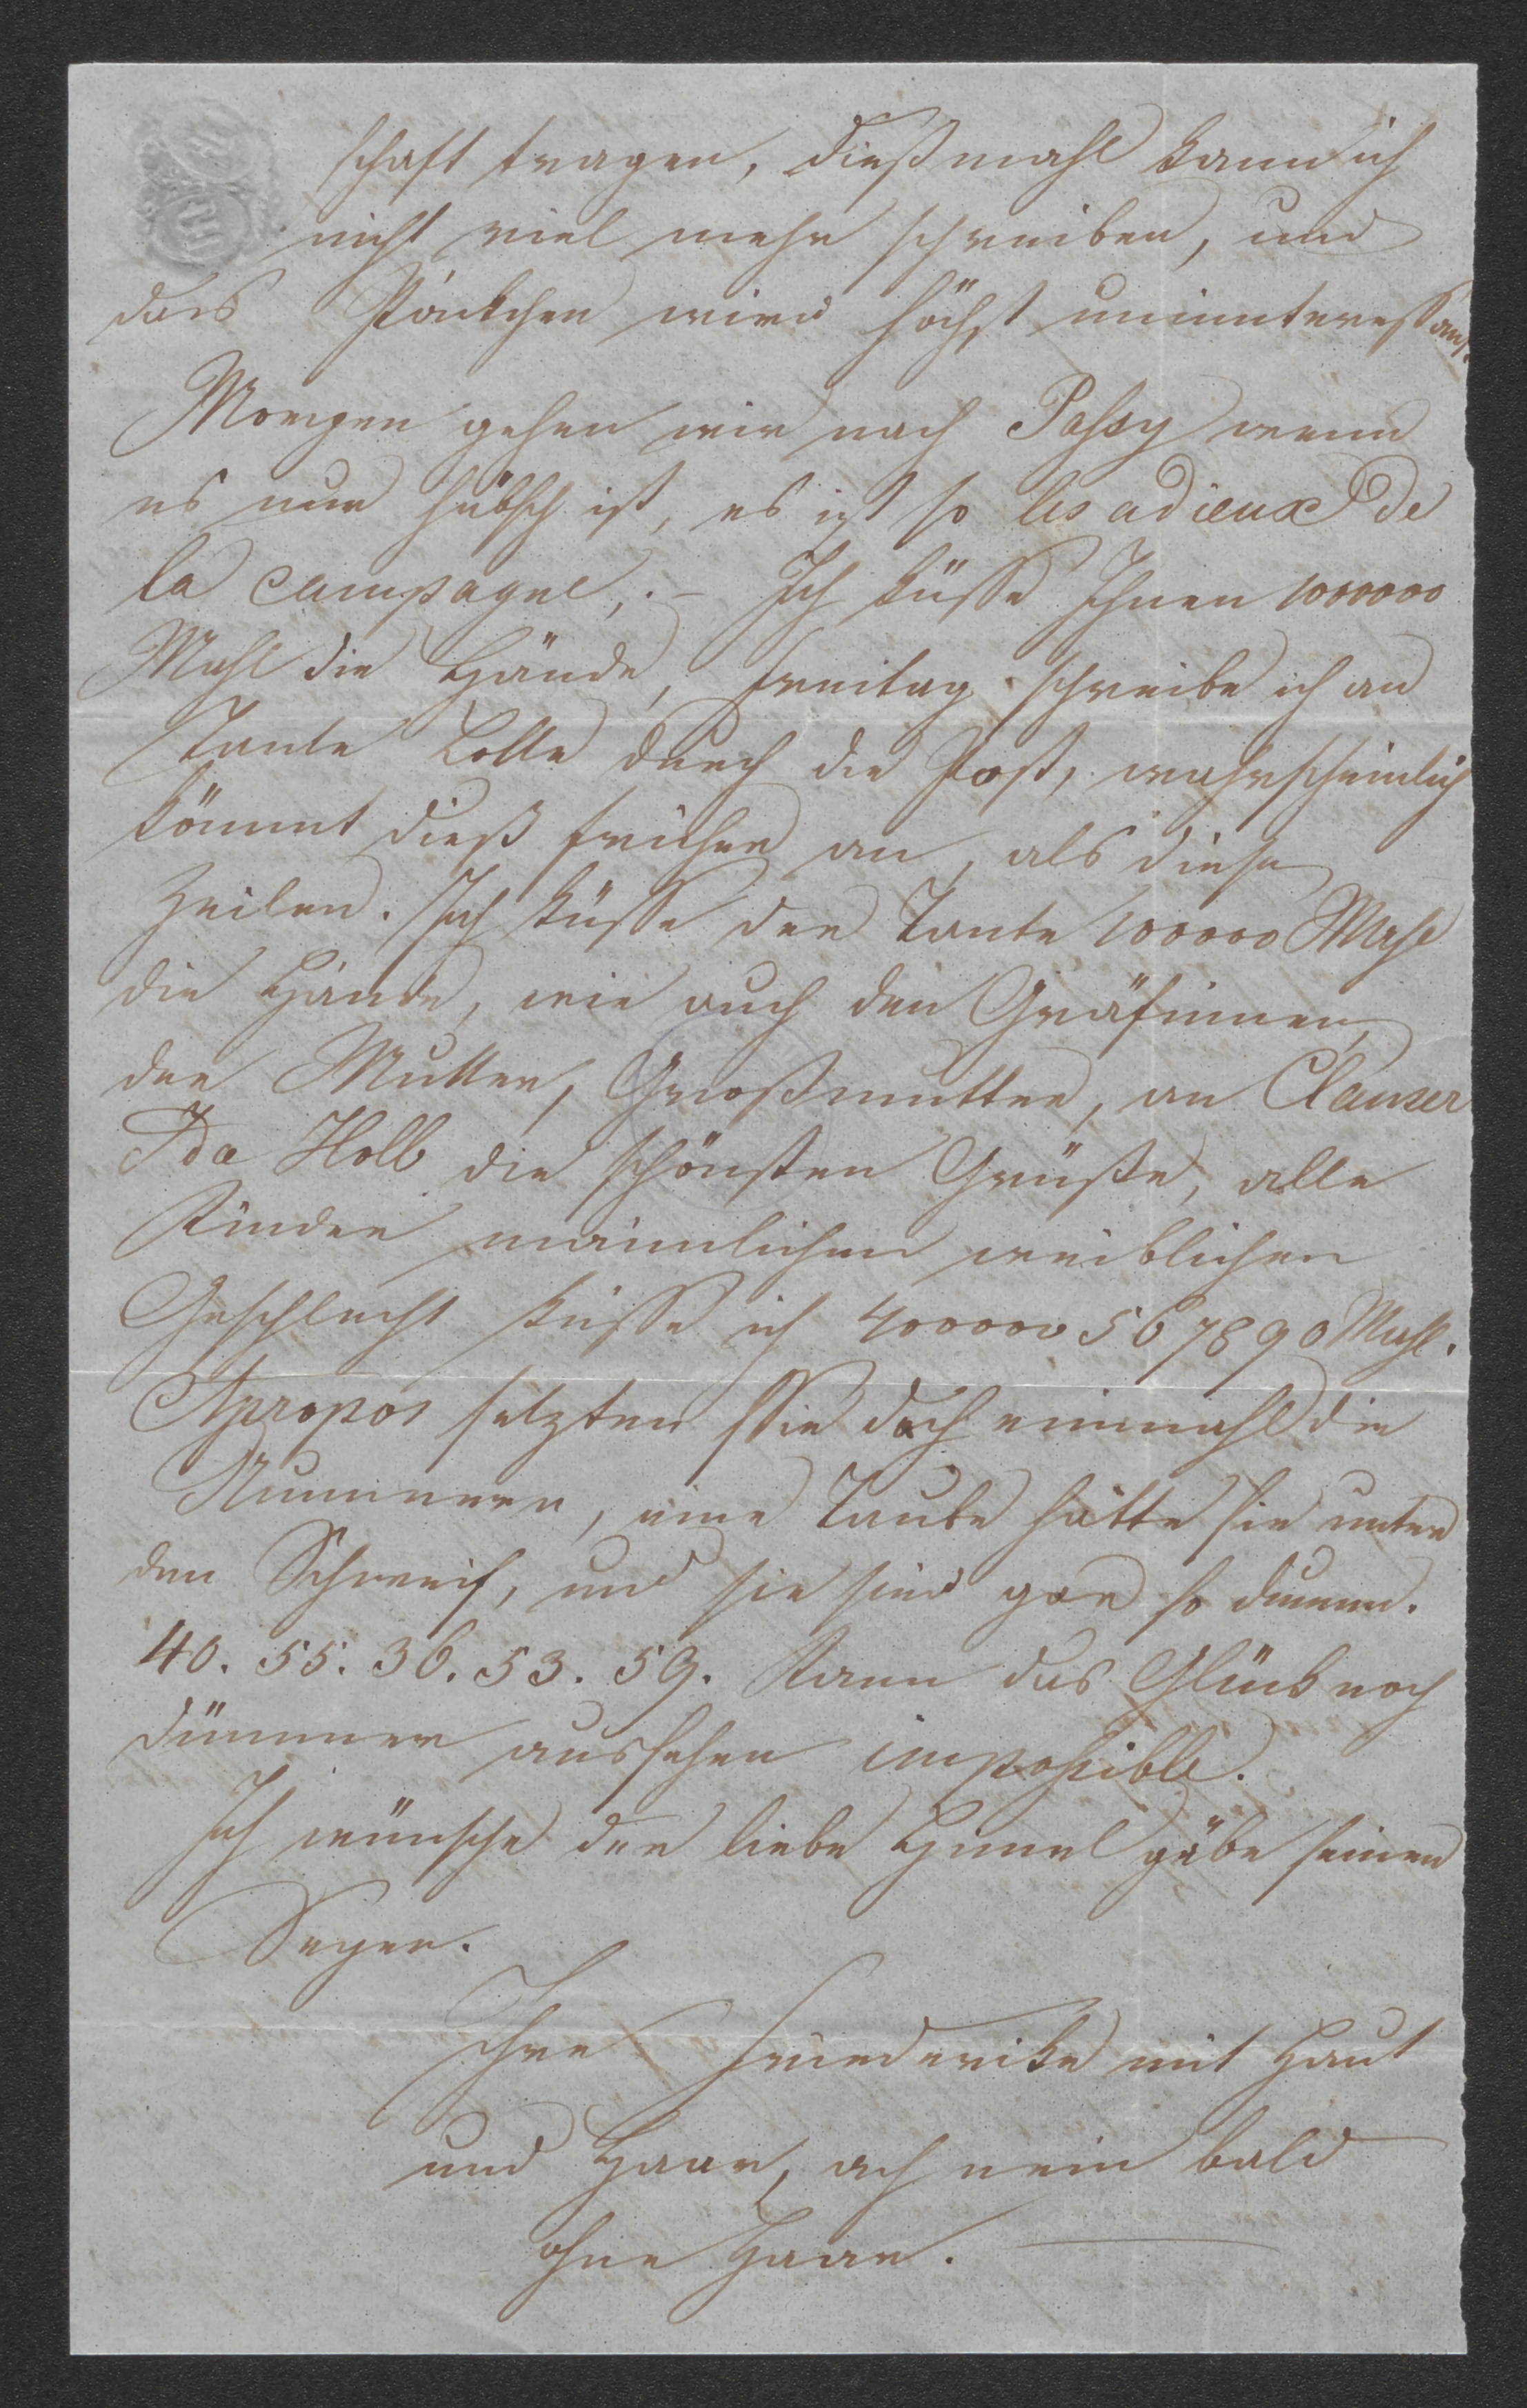 schaft tragen, dießmahl kann ich
nicht viel mehr schreiben, und
das Päckchen wird höchst uninnteressant.
Morgen gehen wir nach Passy wenn
es nur hübsch ist, es ist so les adieux de
la campagne,. – Ich küsse Ihnen 1000000
Mahl die Hände, Freitag schreibe ich an
Tante Lotte durch die Post, wahrscheinlich
kömmt dieß früher an, als diese
Zeilen. Ich küsse der Tante 100000 Mahl
die Hände, wie auch den Gräfinnen,
der Mutter, Großmutter, an Clauser
Ida Holb die schönsten Grüße, alle
Kinder männlichen weiblichen
Geschlecht küsse ich 400000567890 Mahl.
Apropos setzten Sie doch einmahl die
Nummern, eine Taube hätte sie unter
den Schweif, und sie sind gar so dumm.
40. 55. 36. 53. 59. Kann das Glück noch
dümmer aussehen impossible.
Ich wünsche der liebe Himel gäbe seinen
Segen.
Ihre Friederike mit Haut
und Haar, ach nein bald
ohne Haar.